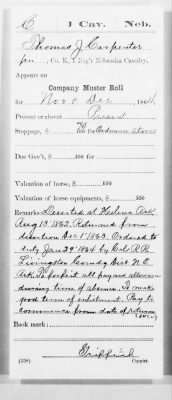 C | 1 Cav. | Neb.
Thomas J. Carpenter
Co. K, 1 Reg't Nebraska Cavalry.
Appears on
Company Muster Roll
for Nov & Dec, 1864.
Present or absent Present
Stoppage, $ 100 for Ordnance Stores
Due Gov't, $ 100 for
Valuation of horse, $ 100
Valuation of horse equipments, $ 100
Remarks: Deserted at Helena Ark
Aug 13 1862. Returned from
desertion Dec 1st 1863. Ordered to
duty Jany 29" 1864 by Col R.R.
Livingston Comdg Dist N.E.
Ark. To forfeit all pay and allowances
during term of absence. To make
good term of enlistment. Pay to
commence from date of return
(over)
Book mark:
Griffith
(358) Copyist.